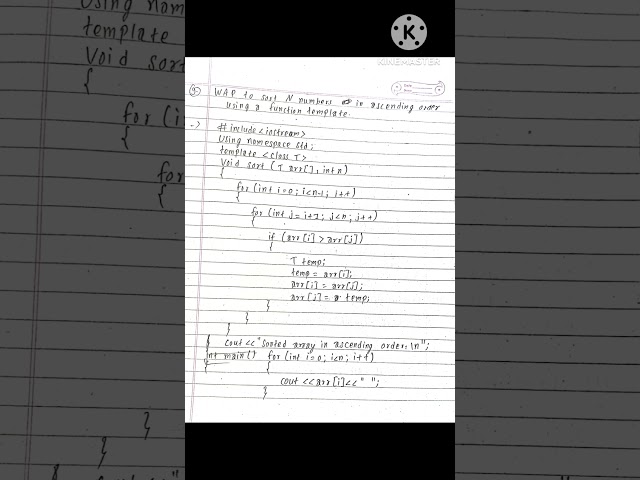 KINEMASTER
9) WAP to sort N numbers in ascending order
using a function template.
-> #include<iostream>
Using namespace std;
template <class T>
Void sort (T arr[], int n)
{
for (int i=0; i<n-1; i++)
{
for (int j=i+1; j<n; j++)
{
if (arr[i] > arr[j])
{
T temp;
temp = arr[i];
arr[i] = arr[j];
arr[j] = temp;
}
}
}
cout<<"Sorted array in ascending order:\n";
int main() for (int i=0; i<n; i++)
{ {
cout <<arr[i]<<" ";
}